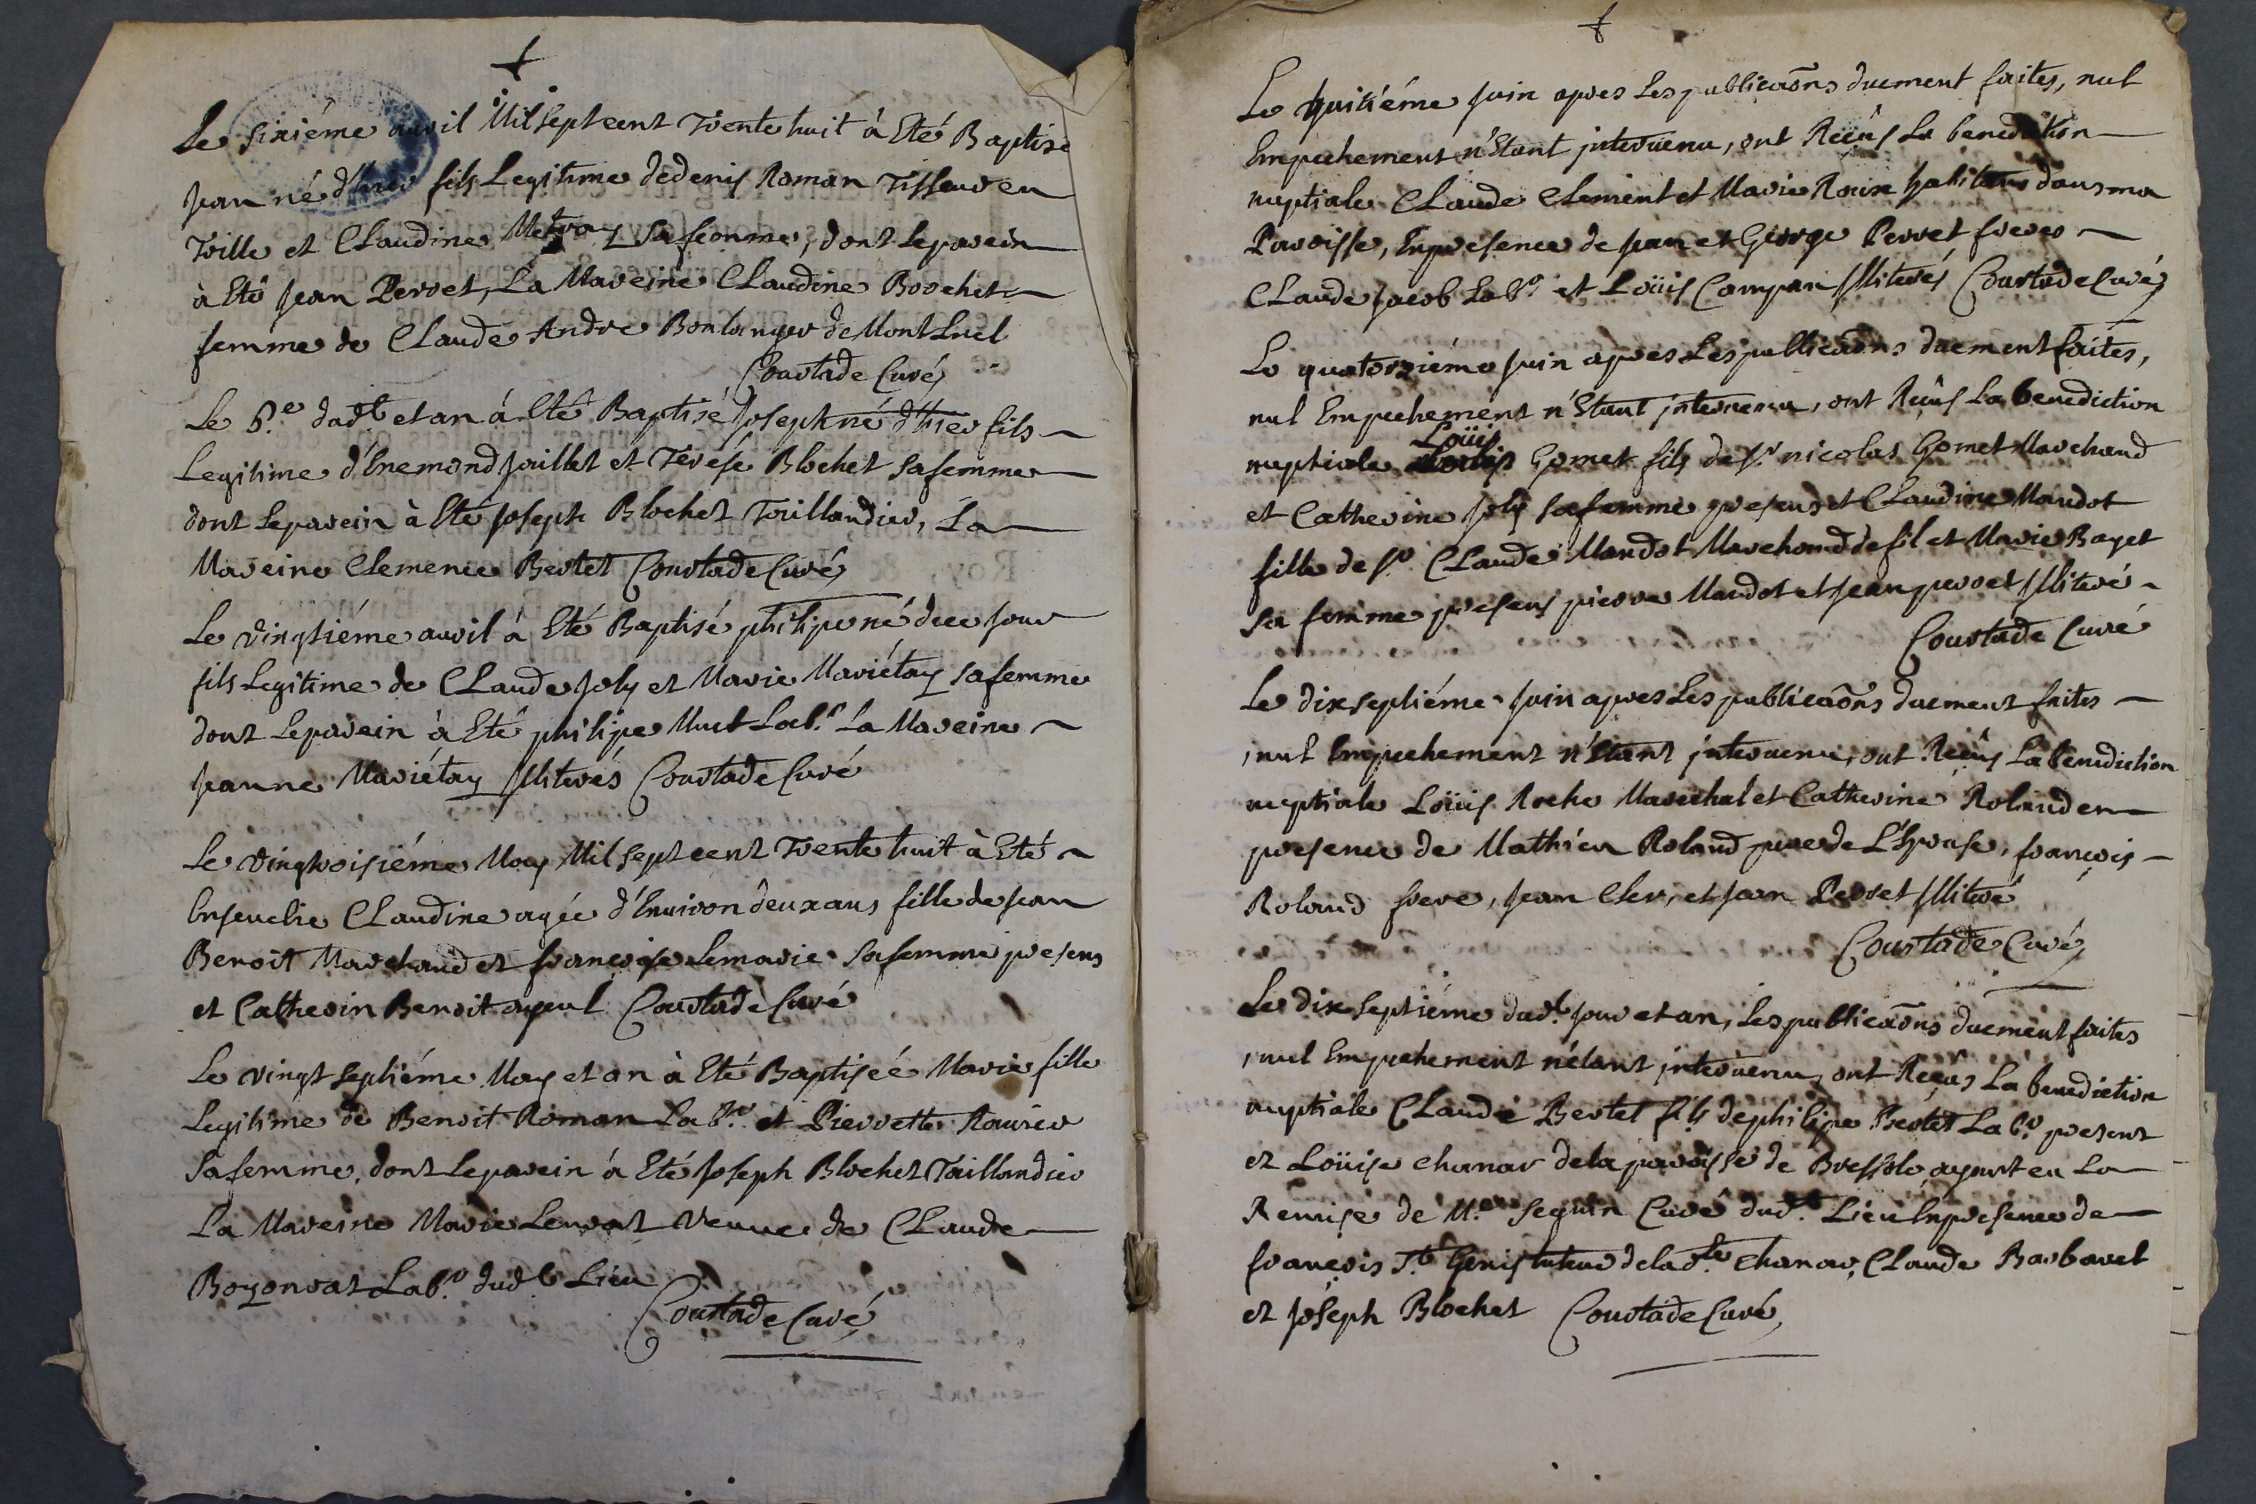 Le sixiéme avril Mil sept cent trente huit à Eté Baptisé
Jean né d'hier fils Legitime de denis Roman Tisseur en
Toille et CLaudine Metray sa femme, dont Leparein
à Eté Jean Perret, La Mareine CLaudine Brochet
femme de CLaude Andre Boulanger de MontLuel
Courtade Curé
Le 8.e dud.t et an à Eté Baptisé Joseph né d'hier fils
Legitime d'Enemond Juillet et Térése Blochet sa femme
dont Leparein à Eté Joseph Blochet Taillandier, La
Mareine Clemence Bertet Courtade Curé
Le vingtiéme avril à Eté Baptisé philipe né de ce jour
fils Legitime de CLaude Joly et Marie Mariétay sa femme
dont Leparein à Eté philipe Muet Lab.r La Mareine
Jeanne Mariétay Illiterés Courtade Curé
Le vingtroisiéme May Mil sept cent trente huit à Eté
Ensevelie CLaudine agée d'Environ deux ans fille de Jean
Benoit Marchand et françoise Lemarie sa femme presens
et Catherin Benoit ayeul Courtade Curé
Le vingt septiéme May et an à Eté Baptiseé Marie fille
Legitime de Benoit Roman Lab.r et Pierrette Rourier
sa femme, dont Leparein à Eté Joseph Blochet Taillandier
La Mareine Marie Lenvat veuve de CLaude
Boyonvat Lab.r dud.t Lieu
Courtade Curé
Le huitiéme Juin apres Les publicaõns duement faites, nul
Empechement n'Etant intervenu, ont Reçûs La benediction
nuptiale CLaude Clement et Marie Roux habitans dans ma
Paroisse, En presence de Jean et George Perret freres
CLaude Jacob Lab.r et Loüis Compan Illiterés Courtade Curé
Le quatorziéme Juin apres Les publicaõns duement faites,
nul Empechement n'Etant intervenu, ont Reçûs La benediction
Loüis
nuptiale Gomet fils de S.r nicolas Gomet Marchand
et Catherine Joly sa femme presens et CLaudine Mandot
fille de S.r CLaude Mandot Marchand de fil et Marie Bayet
sa femme presens pierre Mandot et Jean perret Illiteré
Courtade Curé
Le dix septiéme Juin apres Les publicaõns duement faites
, nul Empechement n'Etant intervenu, ont Reçûs La benediction
nuptiale Loüis Roche Marechal et Catherine Roland en
presence de Mathieu Roland pere de L'Epouse, françois
Roland frere, Jean Cler, et Jean Perret Illiteré
Courtade Curé
Le dix septiéme dud.t jour et an, Les publicaõns duement faites
, nul Empechement n'étant intervenu, ont Reçûs La benediction
nuptiale CLaude Bertet fils de philipe Bertet Lab.r present
et Loüise chanar de la paroisse de Bressole, ayant eu La
Remise de M.re Seguin Curé dud.t Lieu En presence de
françois S.t Genis tuteur de lad.te chanar, CLaude Barbaret
et Joseph Blochet Courtade Curé